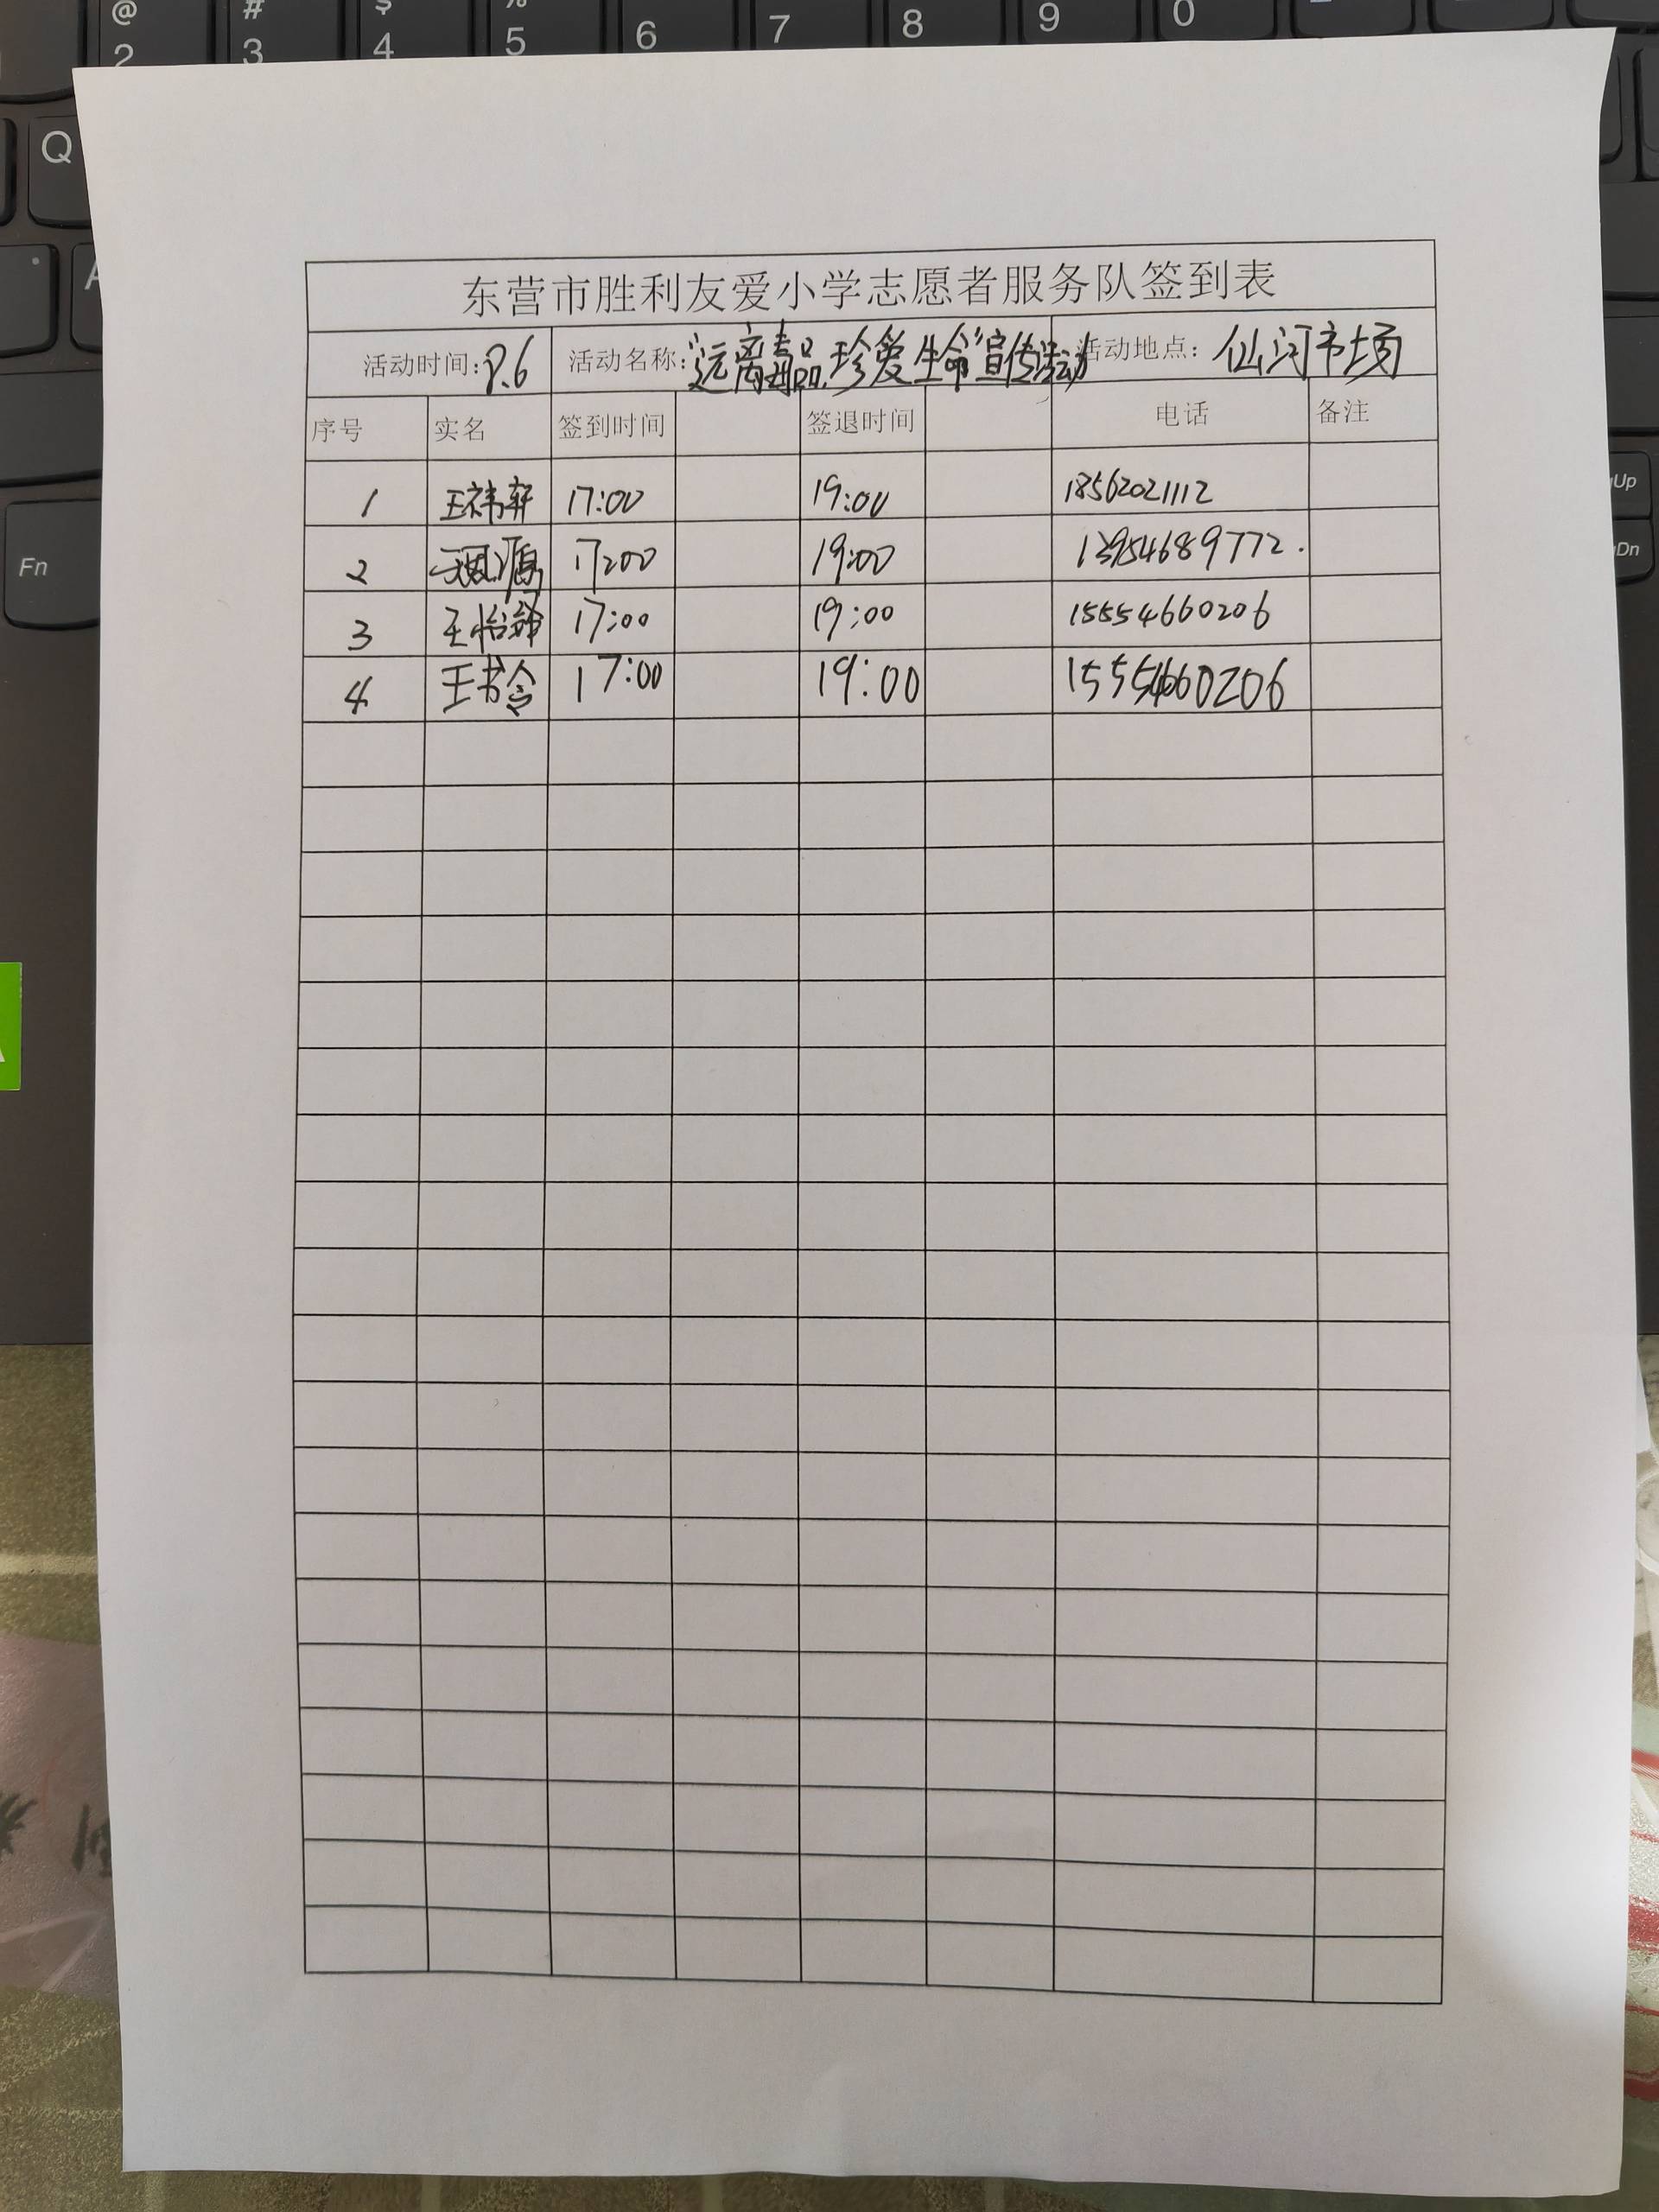 @ # $ %
2 3 4 5 6 7 8 9 0
Q
A
Fn
Up
Dn
东营市胜利友爱小学志愿者服务队签到表
活动时间:8.6 活动名称:"远离毒品,珍爱生命"宣传活动 活动地点:仙河市场
序号 实名 签到时间 签退时间 电话 备注
1 王祎轩 17:00 19:00 18562021112
2 17:00 19:00 13954689772.
3 王怡 17:00 19:00 15554660206
4 王书含 17:00 19:00 15554660206